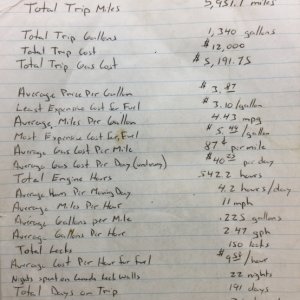 Total Trip Miles 5,951.1 miles
Total Trip Gallons 1,340 gallons
Total Trip Cost $12,000
Total Trip Gas Cost $5,191.75
Average Price Per Gallon $3.87
Least Expensive Cost for Fuel $3.10/gallon
Average Miles Per Gallon 4.43 mpg
Most Expensive Cost for Fuel /gallon
Average Gas Cost Per Mile 87¢ per mile
Average Gas Cost Per Day per day
Total Engine Hours 542.2 hours
Average Hours Per Moving Day 4.2 hours/day
Average Miles Per Hour 11 mph
Average Gallons per Mile .225 gallons
Average Gallons Per Hour 2.47 gph
Total Locks 150 locks
Average Cost Per Hour for fuel /hour
Nights spent on Canada Lock Walls 22 nights
Total Days on Trip 191 days